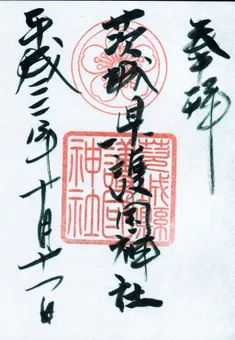 奉拝
茨城県護国神社
平成二二年十月十一日
茨城縣護國神社